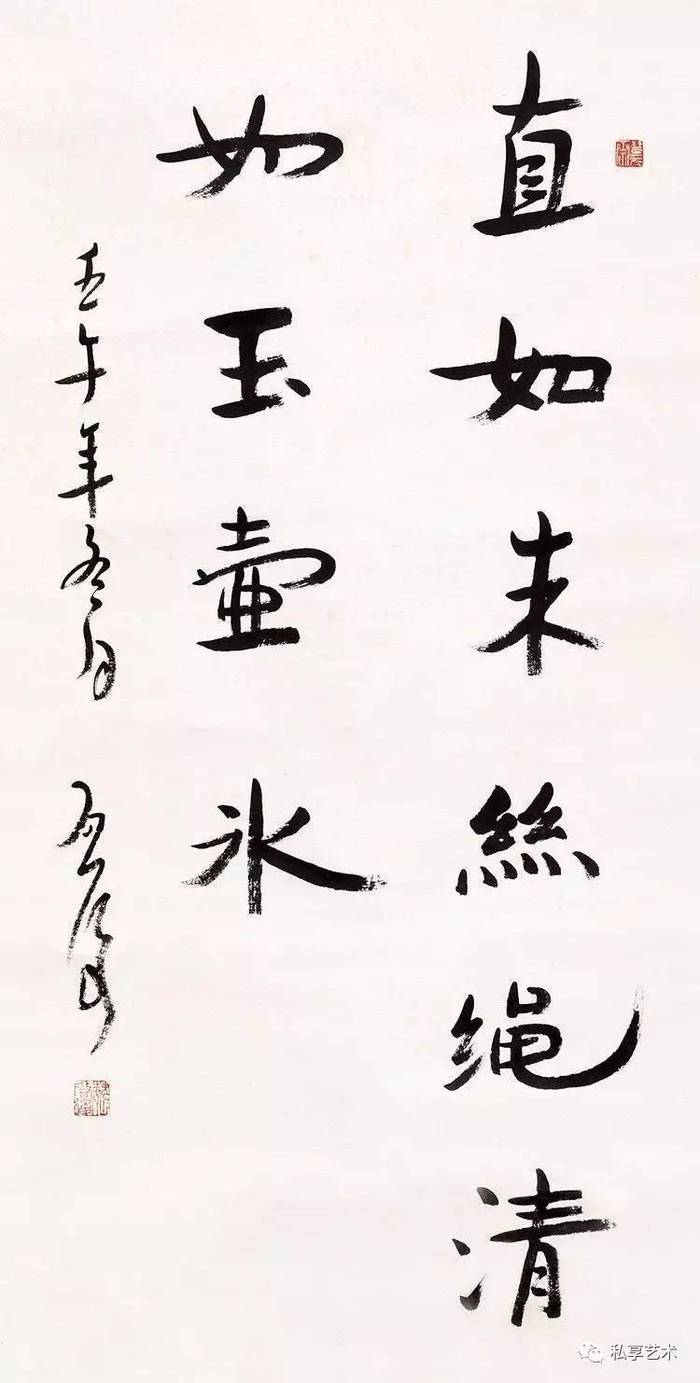 直如朱絲绳清
如玉壺冰
壬午年冬月
私享艺术